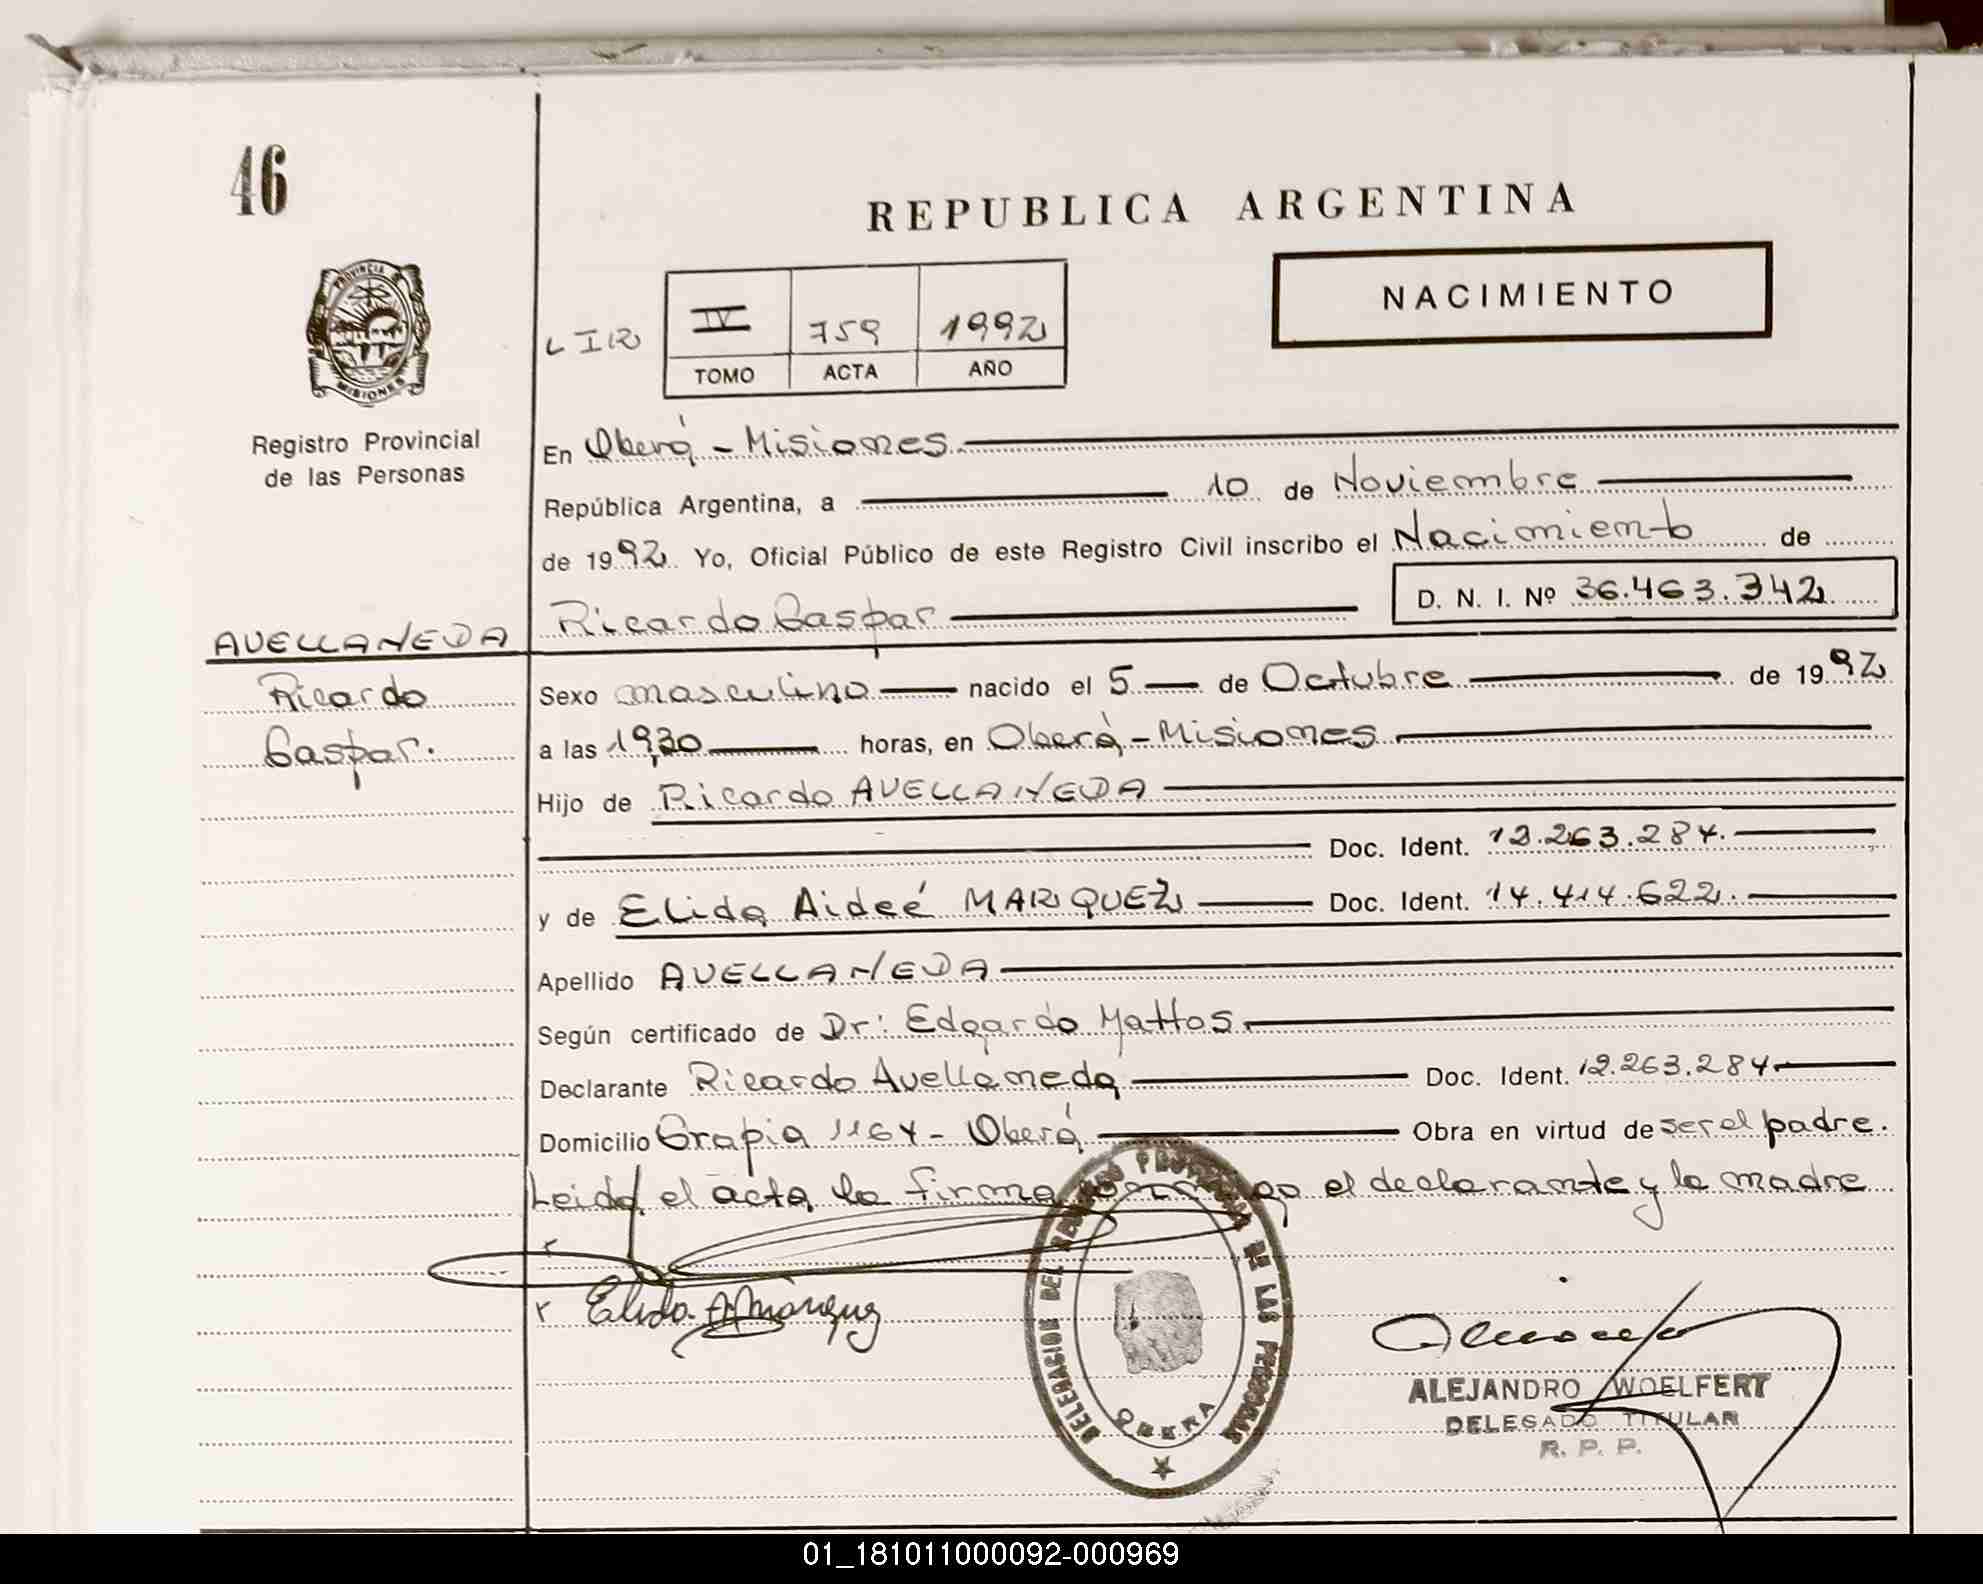 46
REPUBLICA ARGENTINA
NACIMIENTO
IV 759 1992
TOMO ACTA AÑO
PROVINCIA
MISIONES
Registro Provincial
de las Personas
En Oberá - Misiones
República Argentina, a 10 de Noviembre
de 1992 Yo, Oficial Público de este Registro Civil inscribo el Nacimiento de
D. N. I. Nº 36.463.342
Ricardo Gaspar
AVELLANEDA
Ricardo
Gaspar.
Sexo masculino nacido el 5 de Octubre de 1992
a las 19,30 horas, en Oberá - Misiones
Hijo de Ricardo AVELLANEDA
Doc. Ident. 12.263.284.
y de Elida Aideé MARQUEZ Doc. Ident. 14.414.622.
Apellido AVELLANEDA
Según certificado de Dr: Edgardo Mattos.
Declarante Ricardo Avellaneda Doc. Ident. 12.263.284
Domicilio Grapia 1164 - Oberá Obra en virtud de ser el padre.
Leida el acta la firma conmigo el declarante y la madre
Elida A Marquez
DELEGACION DEL REGISTRO PROVINCIAL DE LAS PERSONAS
OBERA
ALEJANDRO WOELFERT
DELEGADO TITULAR
R. P. P.
01_181011000092-000969